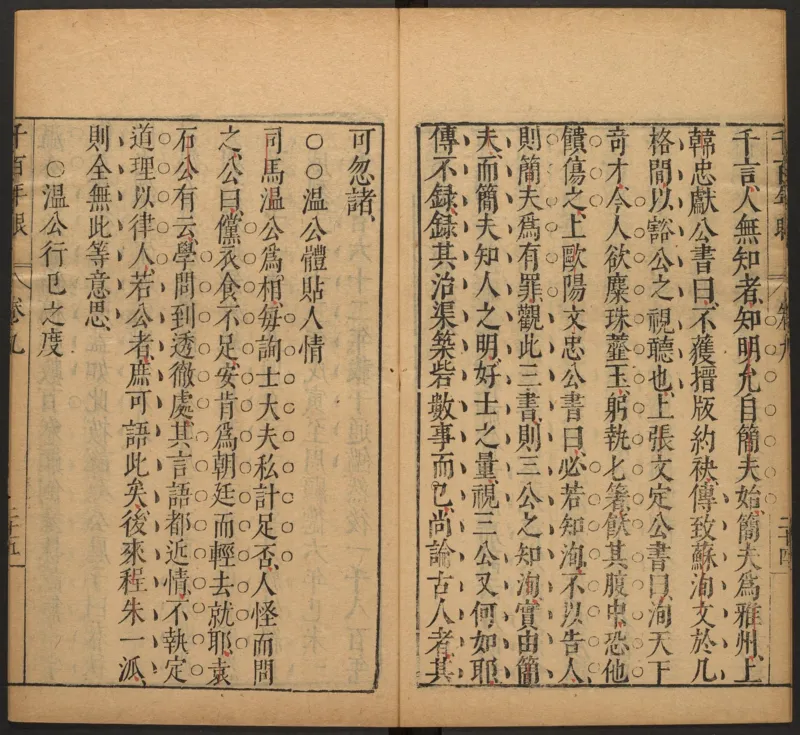 千言、人無知者、知明允自簡夫始、簡夫為雅州、上
韓忠獻公書曰、不獲搢版約袂、傳致蘇洵文於几
格間、以豁公之視聽也、上張文定公書曰、洵天下
奇才、今人欲麋珠虀玉、躬執匕箸、飫其腹中、恐他
饋傷之、上歐陽文忠公書曰、必若知洵、不以告人、
則簡夫為有罪、觀此三書、則三公之知洵、實由簡
夫、而簡夫知人之明、好士之量、視三公又何如耶、
傳不録、録其治渠築砦數事而已、尚論古人者、其
千百年眼
卷九
二十四
可忽諸、
○○温公體貼人情
司馬温公為相、每詢士大夫私計足否、人怪而問
之、公曰、儻衣食不足、安肯為朝廷而輕去就耶、袁
石公有云、學問到透徹處、其言語都近情、不執定
道理以律人、若公者、庶可語此矣、後來程朱一派、
則全無此等意思、
○温公行已之度
千百年眼
卷九
二十五